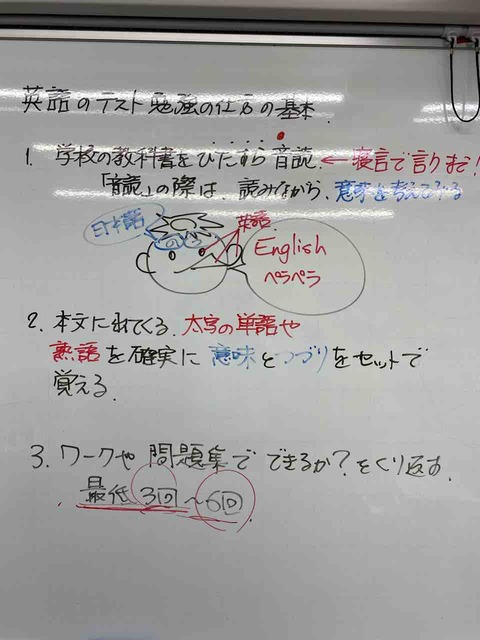 英語のテスト勉強の仕方の基本.
1. 学校の教科書をひたすら音読. ← 寝言で言うまで!
「音読」の際は、読みながら、意味を考えてみる
日本語
英語
English
ペラペラ
2. 本文に出てくる、太字の単語や
熟語を確実に意味とつづりをセットで
覚える.
3. ワークや問題集でできるか?をくり返す.
最低3回~6回.